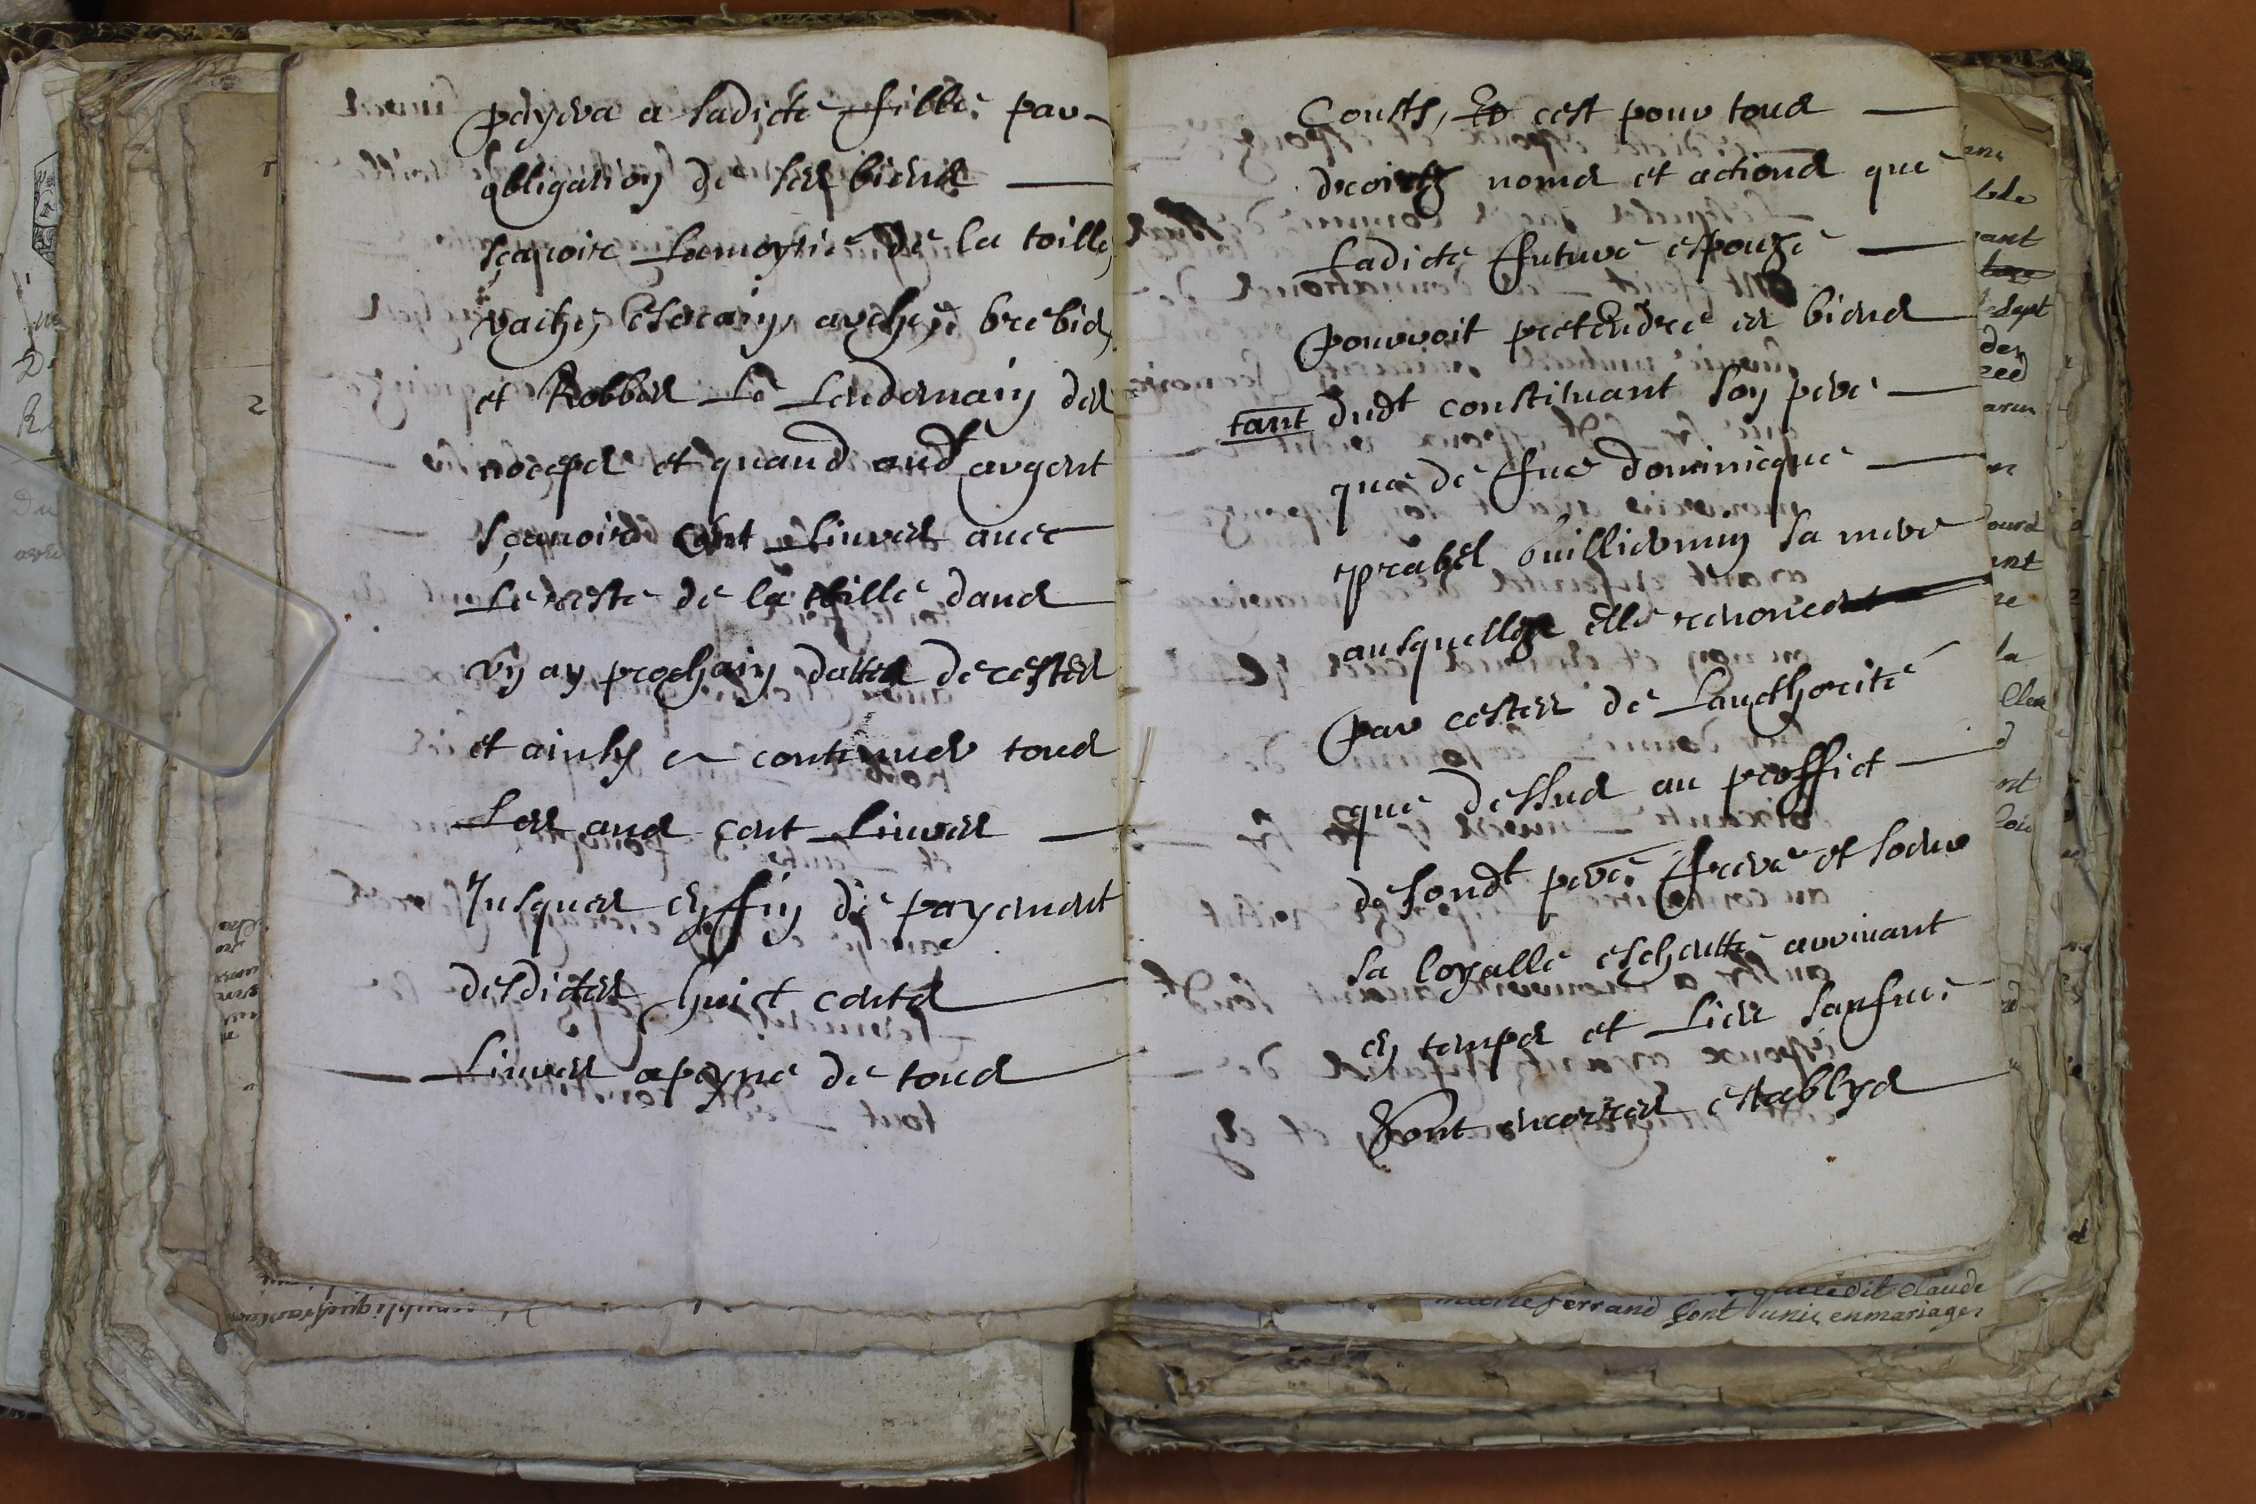 payera a ladicte fille par
obligation de ses biens
sçavoir la moytié de la toille
vache, arche, brebis
et Robbes le lendemain des
nopces et quand aud argent
sçavoir cent livres avec
le reste de la toille dans
vng an prochain datte de cestes
et ainsy en continuer tous
les ans cent livres
Jusques en fin de payement
desdictes huict cents
livres a peyne de tous
Cousts, Et cest pour tous
droicts noms et actions que
ladicte future espouze
pouvoit pretendre es biens
tant dudt constituant son pere
que de fue dominicque
ysabel Guilliermin sa mere
ausquelles elle renonce
par cestes de lauthorité
que dessus au proffict
de sondt pere, frere et soeur
sa loyalle escheutte arrivant
en temps et lieu sauf
Sont encores establys
marie ferrand sont unis en mariage